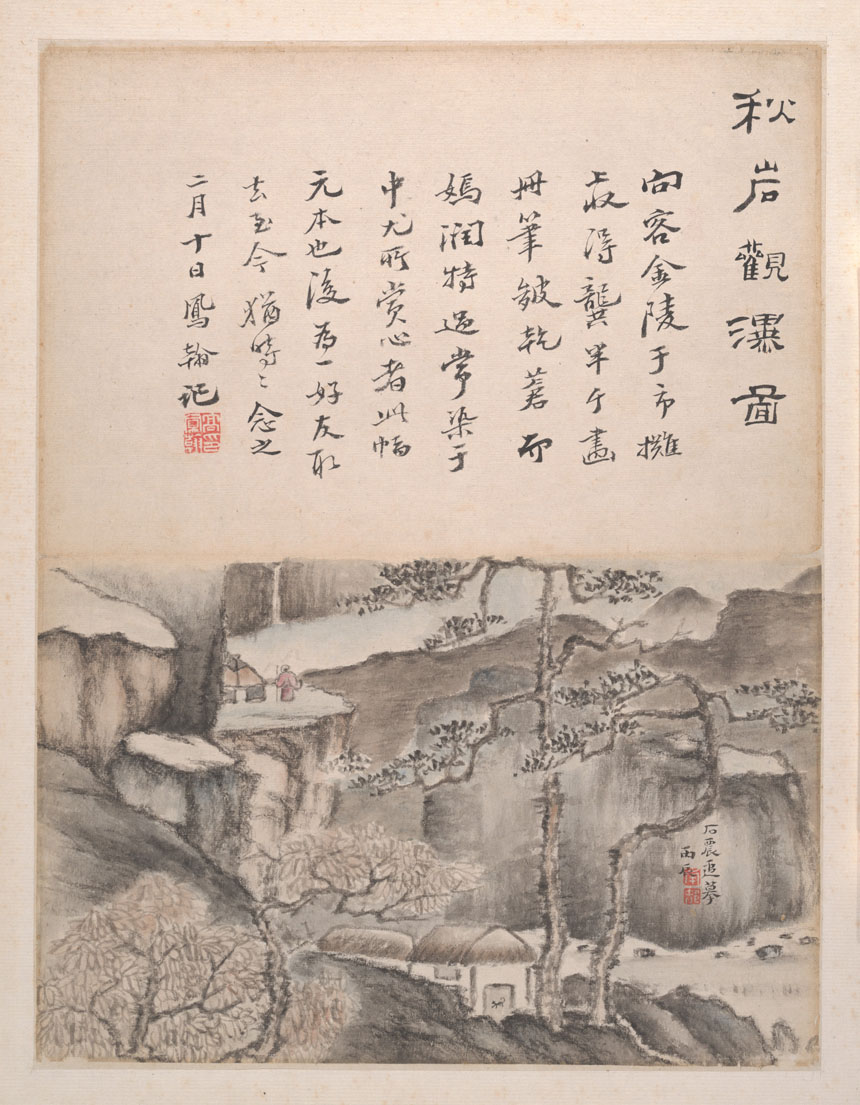 秋岩觀瀑圖
向客金陵于市攤
收得龔半千畫
冊筆皴乾蒼而
嫣潤特過常染于
中尤所賞心者此幅
元本也後為一好友取
去至今猶時〻念之
二月十日鳳翰記
石震追摹
丙辰